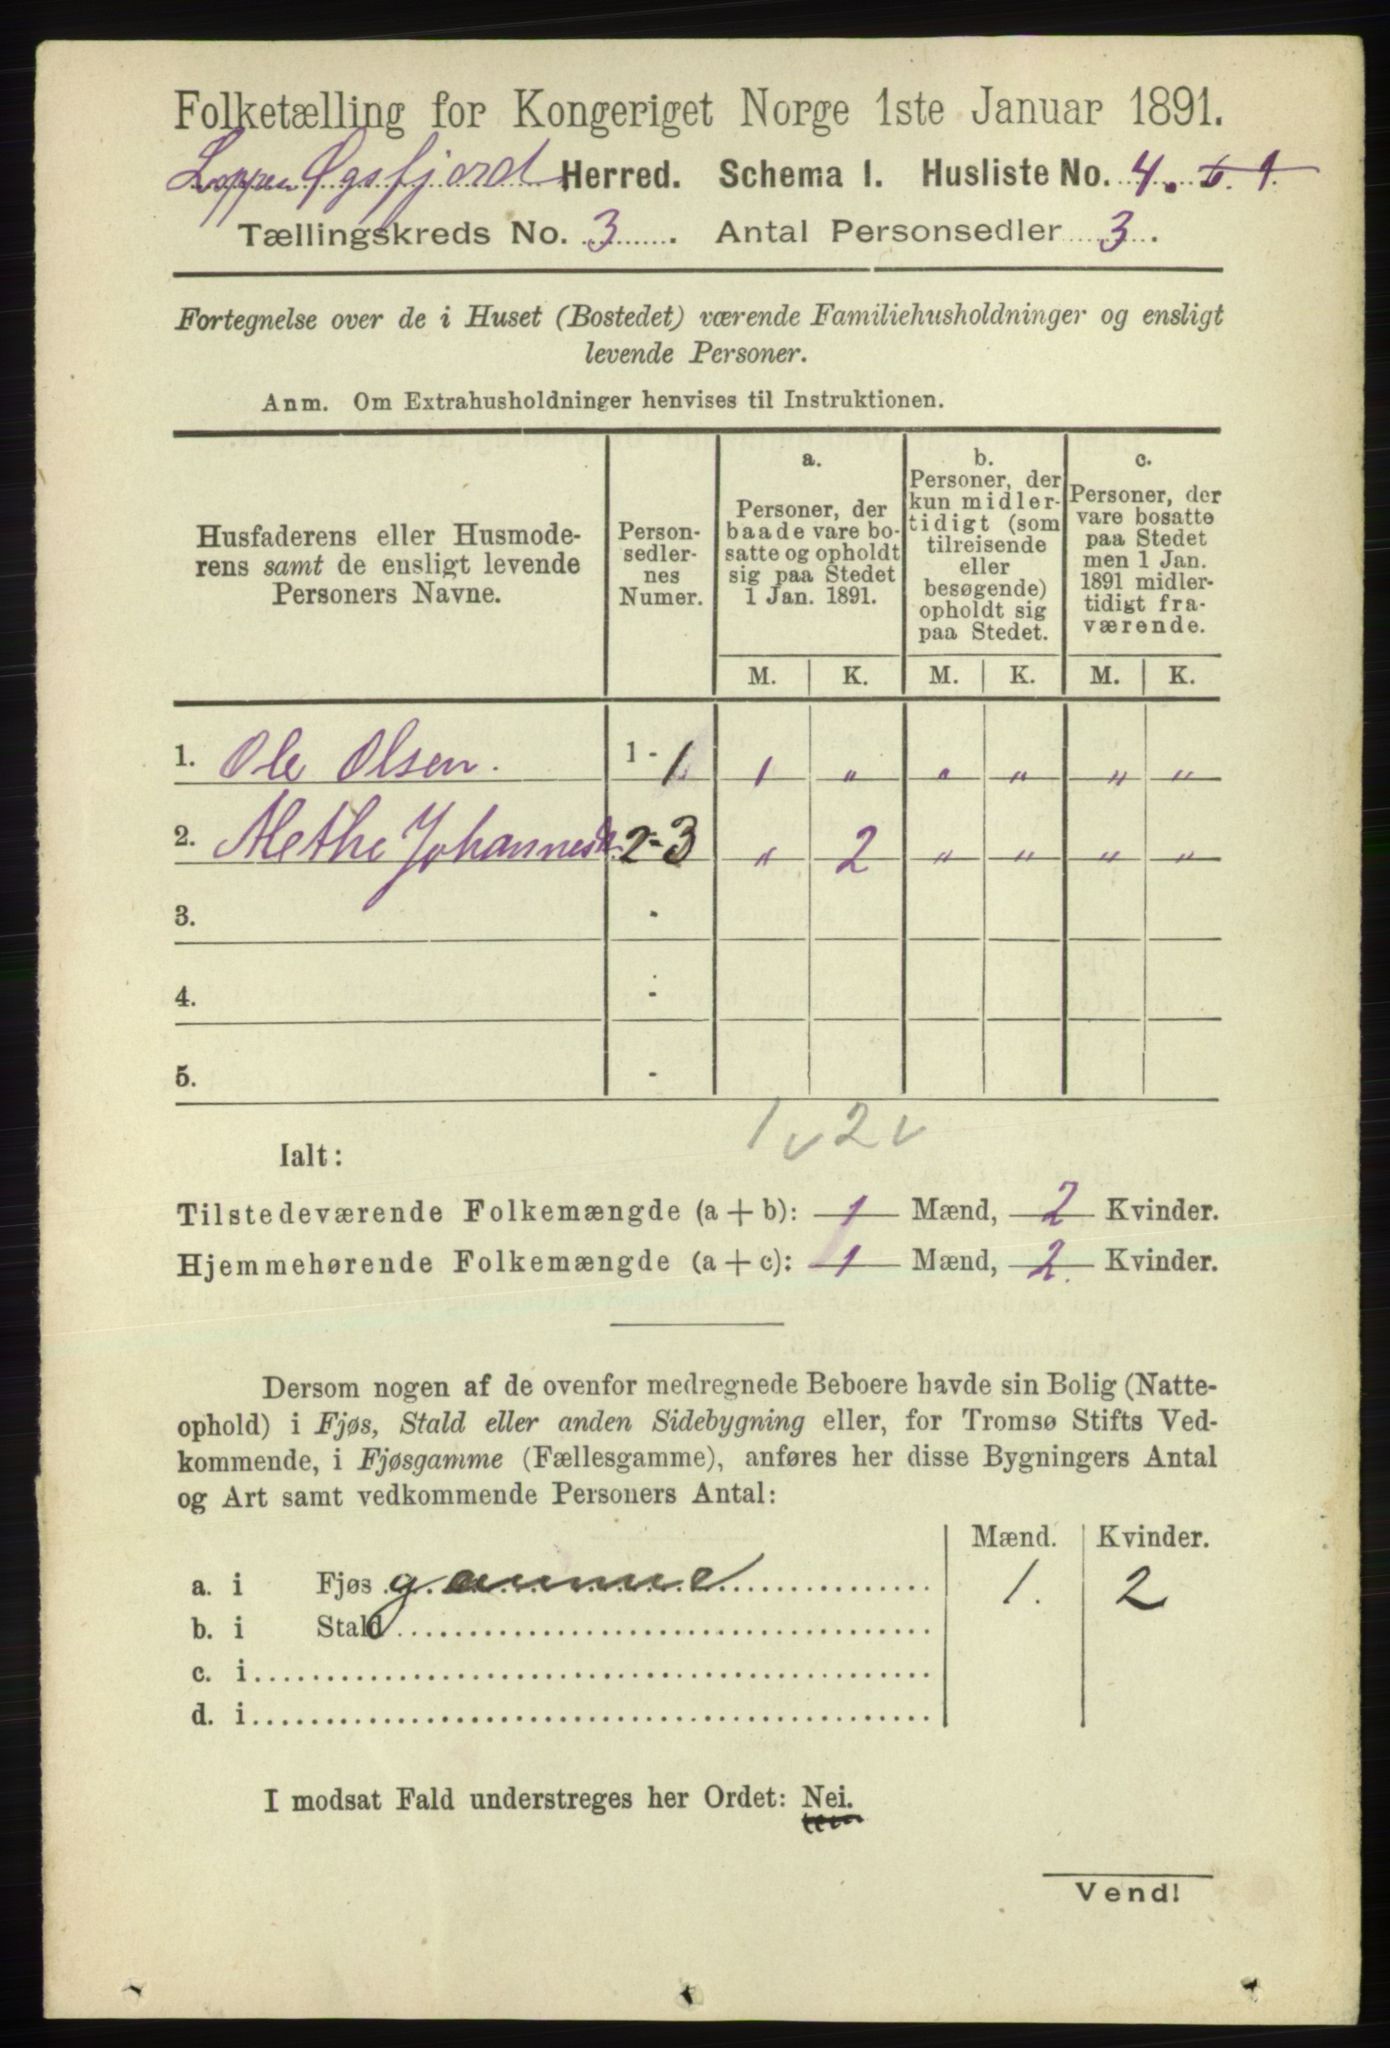 Folketælling for Kongeriget Norge 1ste Januar 1891.
Loppen Øgsfjord Herred. Schema I. Husliste No. 4.
Tællingskreds No. 3. Antal Personsedler 3.
Fortegnelse over de i Huset (Bostedet) værende Familiehusholdninger og ensligt
levende Personer.
Anm. Om Extrahusholdninger henvises til Instruktionen.
Husfaderens eller Husmode-
rens samt de ensligt levende
Personers Navne.
Person-
sedler-
nes
Numer.
a.
Personer, der
baade vare bo-
satte og opholdt
sig paa Stedet
1 Jan. 1891.
b.
Personer, der
kun midler-
tidigt (som
tilreisende
eller
besøgende)
opholdt sig
paa Stedet.
c.
Personer, der
vare bosatte
paa Stedet
men 1 Jan.
1891 midler-
tidigt fra-
værende.
M. K. M. K. M. K.
1. Ole Olsen. 1-1 1 " " " " "
2. Methe Johannesd. 2-3 " 2 " " " "
3. -
4. -
5. -
1 v 2 v
Ialt:
Tilstedeværende Folkemængde (a+b): 1 Mænd, 2 Kvinder.
Hjemmehørende Folkemængde (a+c): 1 Mænd, 2 Kvinder.
Dersom nogen af de ovenfor medregnede Beboere havde sin Bolig (Natte-
ophold) i Fjøs, Stald eller anden Sidebygning eller, for Tromsø Stifts Ved-
kommende, i Fjøsgamme (Fællesgamme), anføres her disse Bygningers Antal
og Art samt vedkommende Personers Antal:
Mænd. Kvinder.
a. i Fjøs gamme 1. 2
b. i Stald
c. i
d. i
I modsat Fald understreges her Ordet: Nei.
Vend!